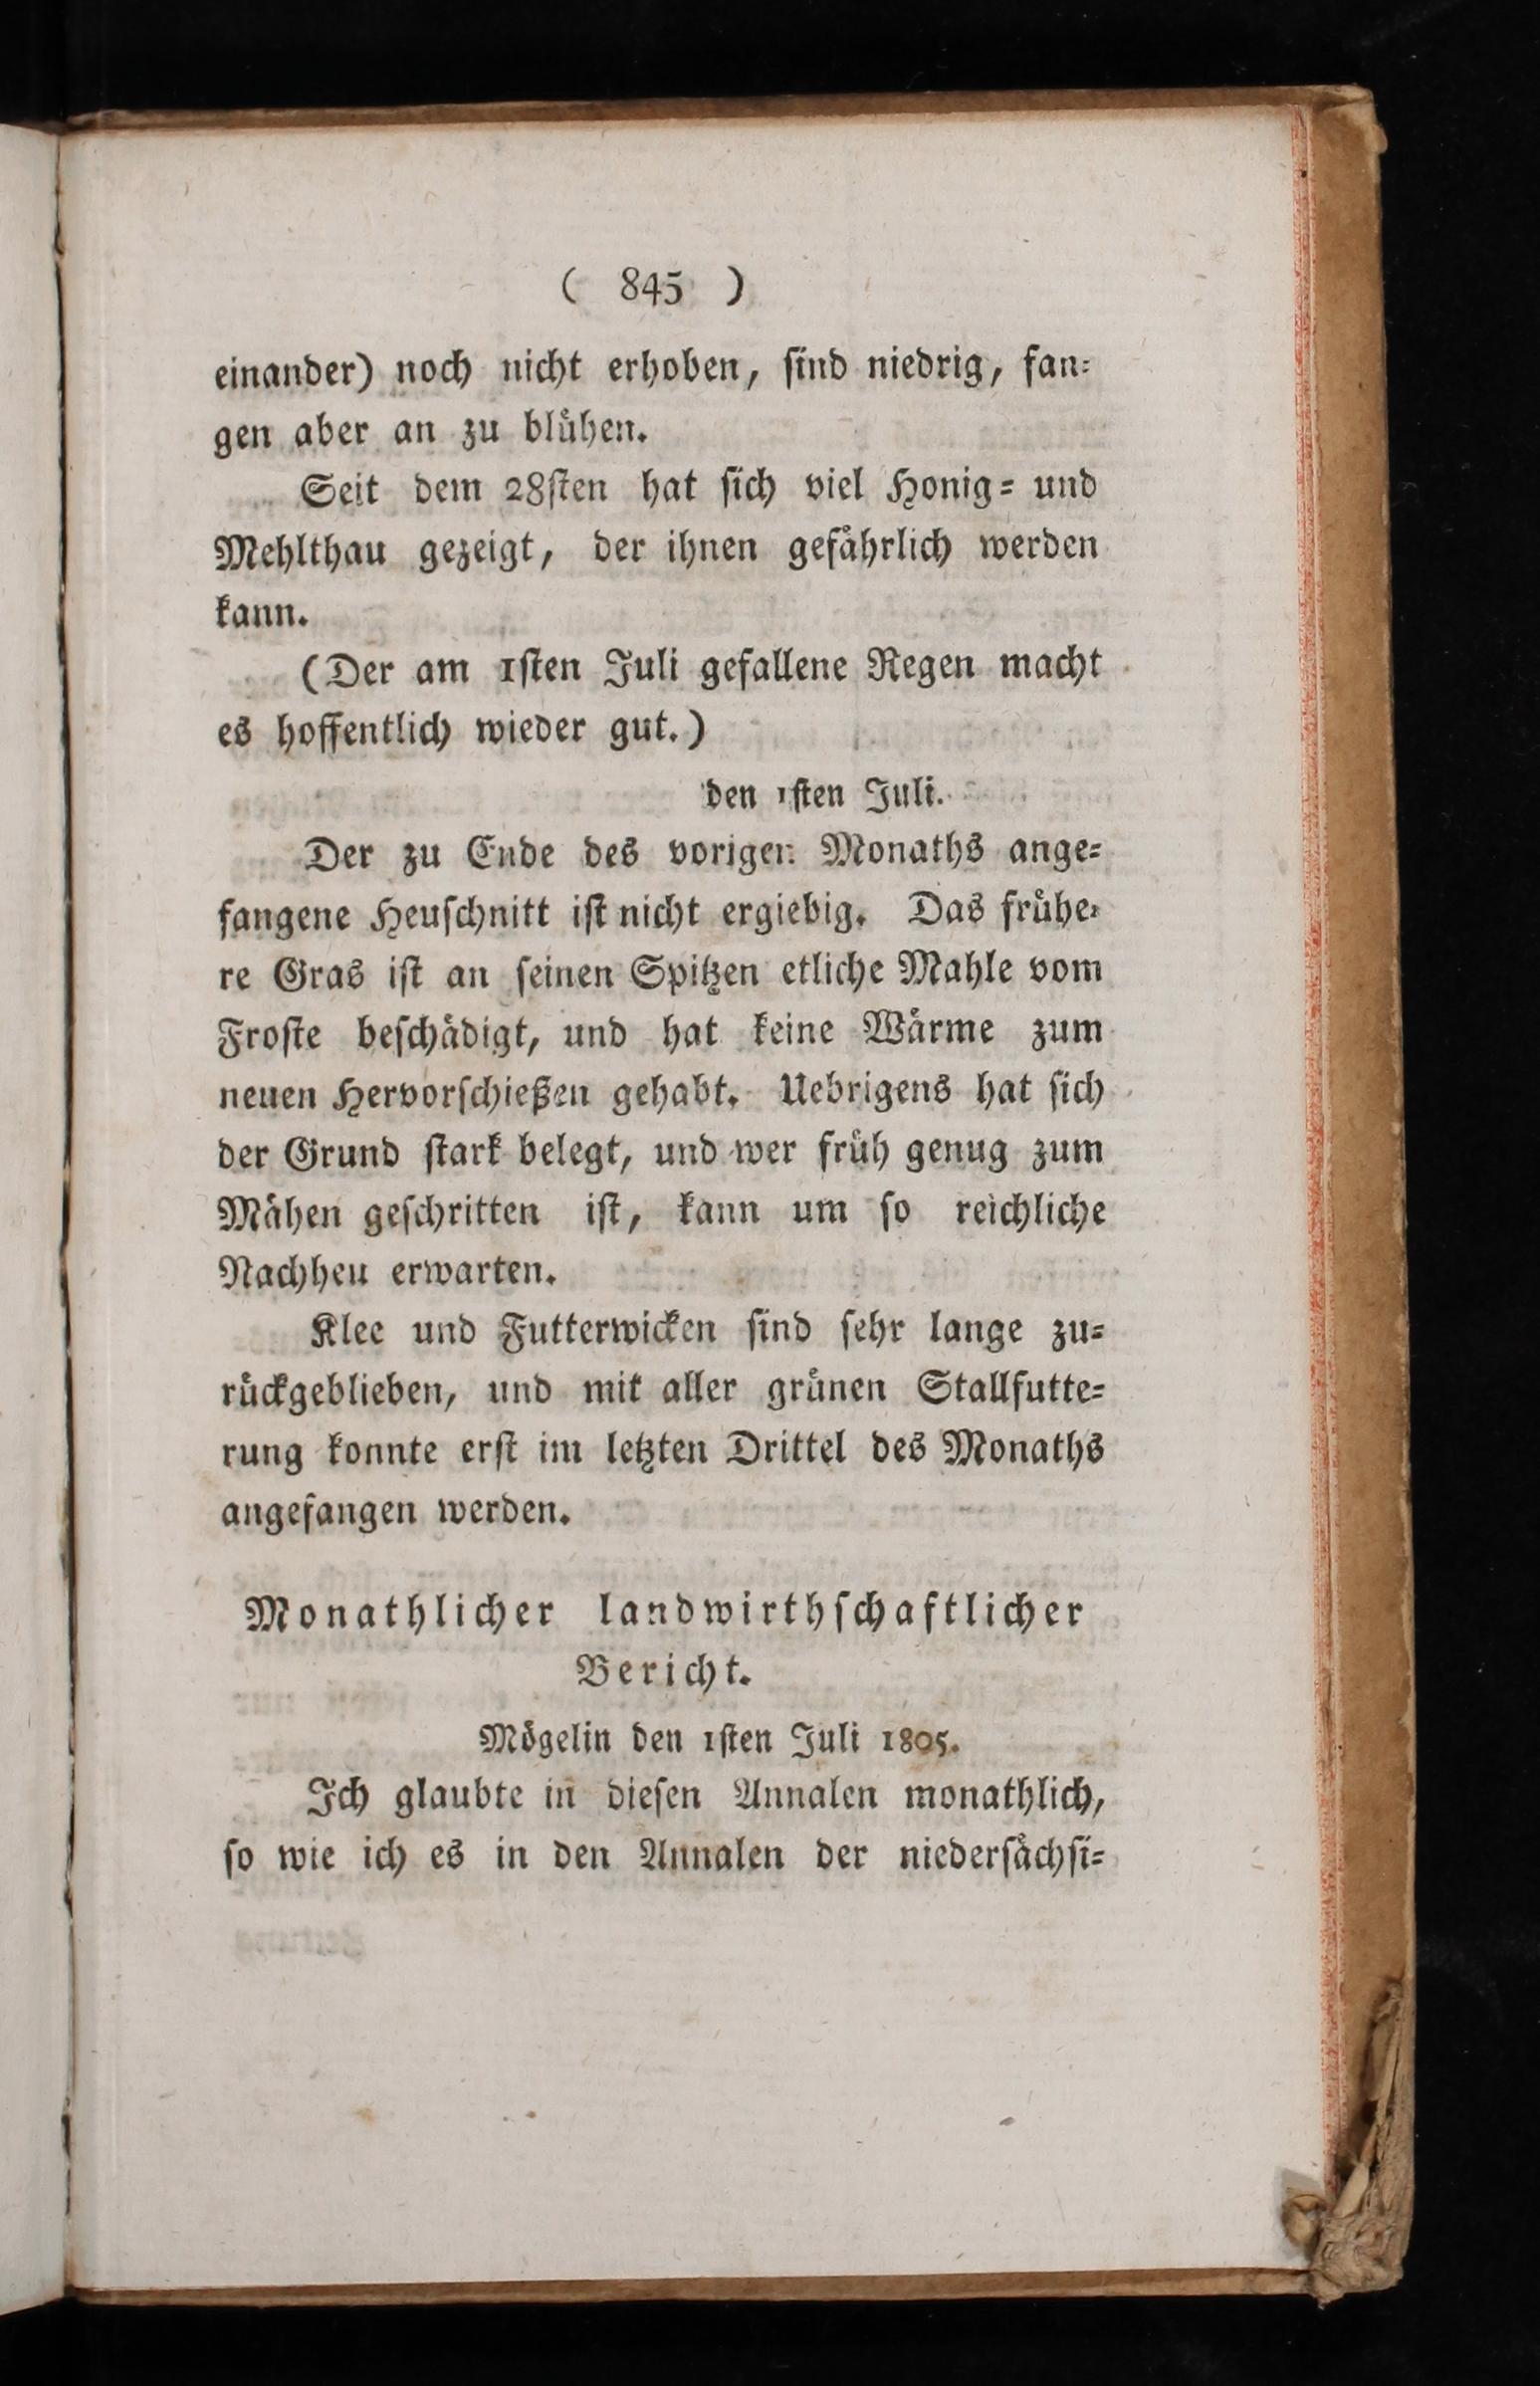 ( 845 )
einander) noch nicht erhoben, sind niedrig, fan-
gen aber an zu blühen.
Seit dem 28sten hat sich viel Honig- und
Mehlthau gezeigt, der ihnen gefährlich werden
kann.
(Der am 1sten Juli gefallene Regen macht
es hoffentlich wieder gut.)
den 1sten Juli.
Der zu Ende des vorigen Monaths ange-
fangene Heuschnitt ist nicht ergiebig. Das frühe-
re Gras ist an seinen Spitzen etliche Mahle vom
Froste beschädigt, und hat keine Wärme zum
neuen Hervorschießen gehabt. Uebrigens hat sich
der Grund stark belegt, und wer früh genug zum
Mähen geschritten ist, kann um so reichliche
Nachheu erwarten.
Klee und Futterwicken sind sehr lange zu-
rückgeblieben, und mit aller grünen Stallfutte-
rung konnte erst im letzten Drittel des Monaths
angefangen werden.
Monathlicher landwirthschaftlicher
Bericht.
Mögelin den 1sten Juli 1805.
Ich glaubte in diesen Annalen monathlich,
so wie ich es in den Annalen der niedersächsi-